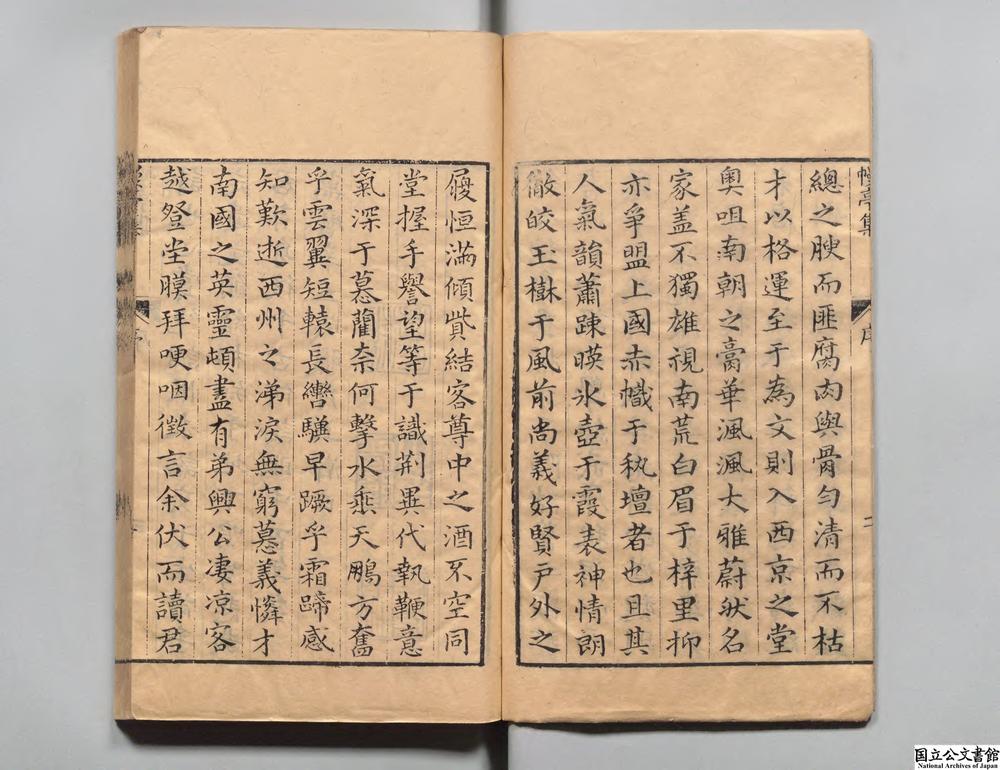 幔亭集
序
二
總之腴而匪腐肉與骨勻清而不枯
才以格運至于為文則入西京之堂
奥咀南朝之膏華渢渢大雅蔚狀名
家盖不獨雄視南荒白眉于梓里抑
亦爭盟上國赤幟于秇壇者也且其
人氣韻蕭踈暎氷壺于霞表神情朗
徹皎玉樹于風前尚義好賢戸外之
屨恒滿傾貲結客尊中之酒不空同
堂握手譽望等于識荆異代執鞭意
氣深于慕藺柰何擊水垂天鵬方奮
乎雲翼短轅長轡驥早蹶乎霜蹄感
知歎逝西州之涕淚無窮慕義憐才
南國之英靈頓盡有弟興公淒凉客
越登堂膜拜哽咽徴言余伏而讀君
国立公文書館
National Archives of Japan